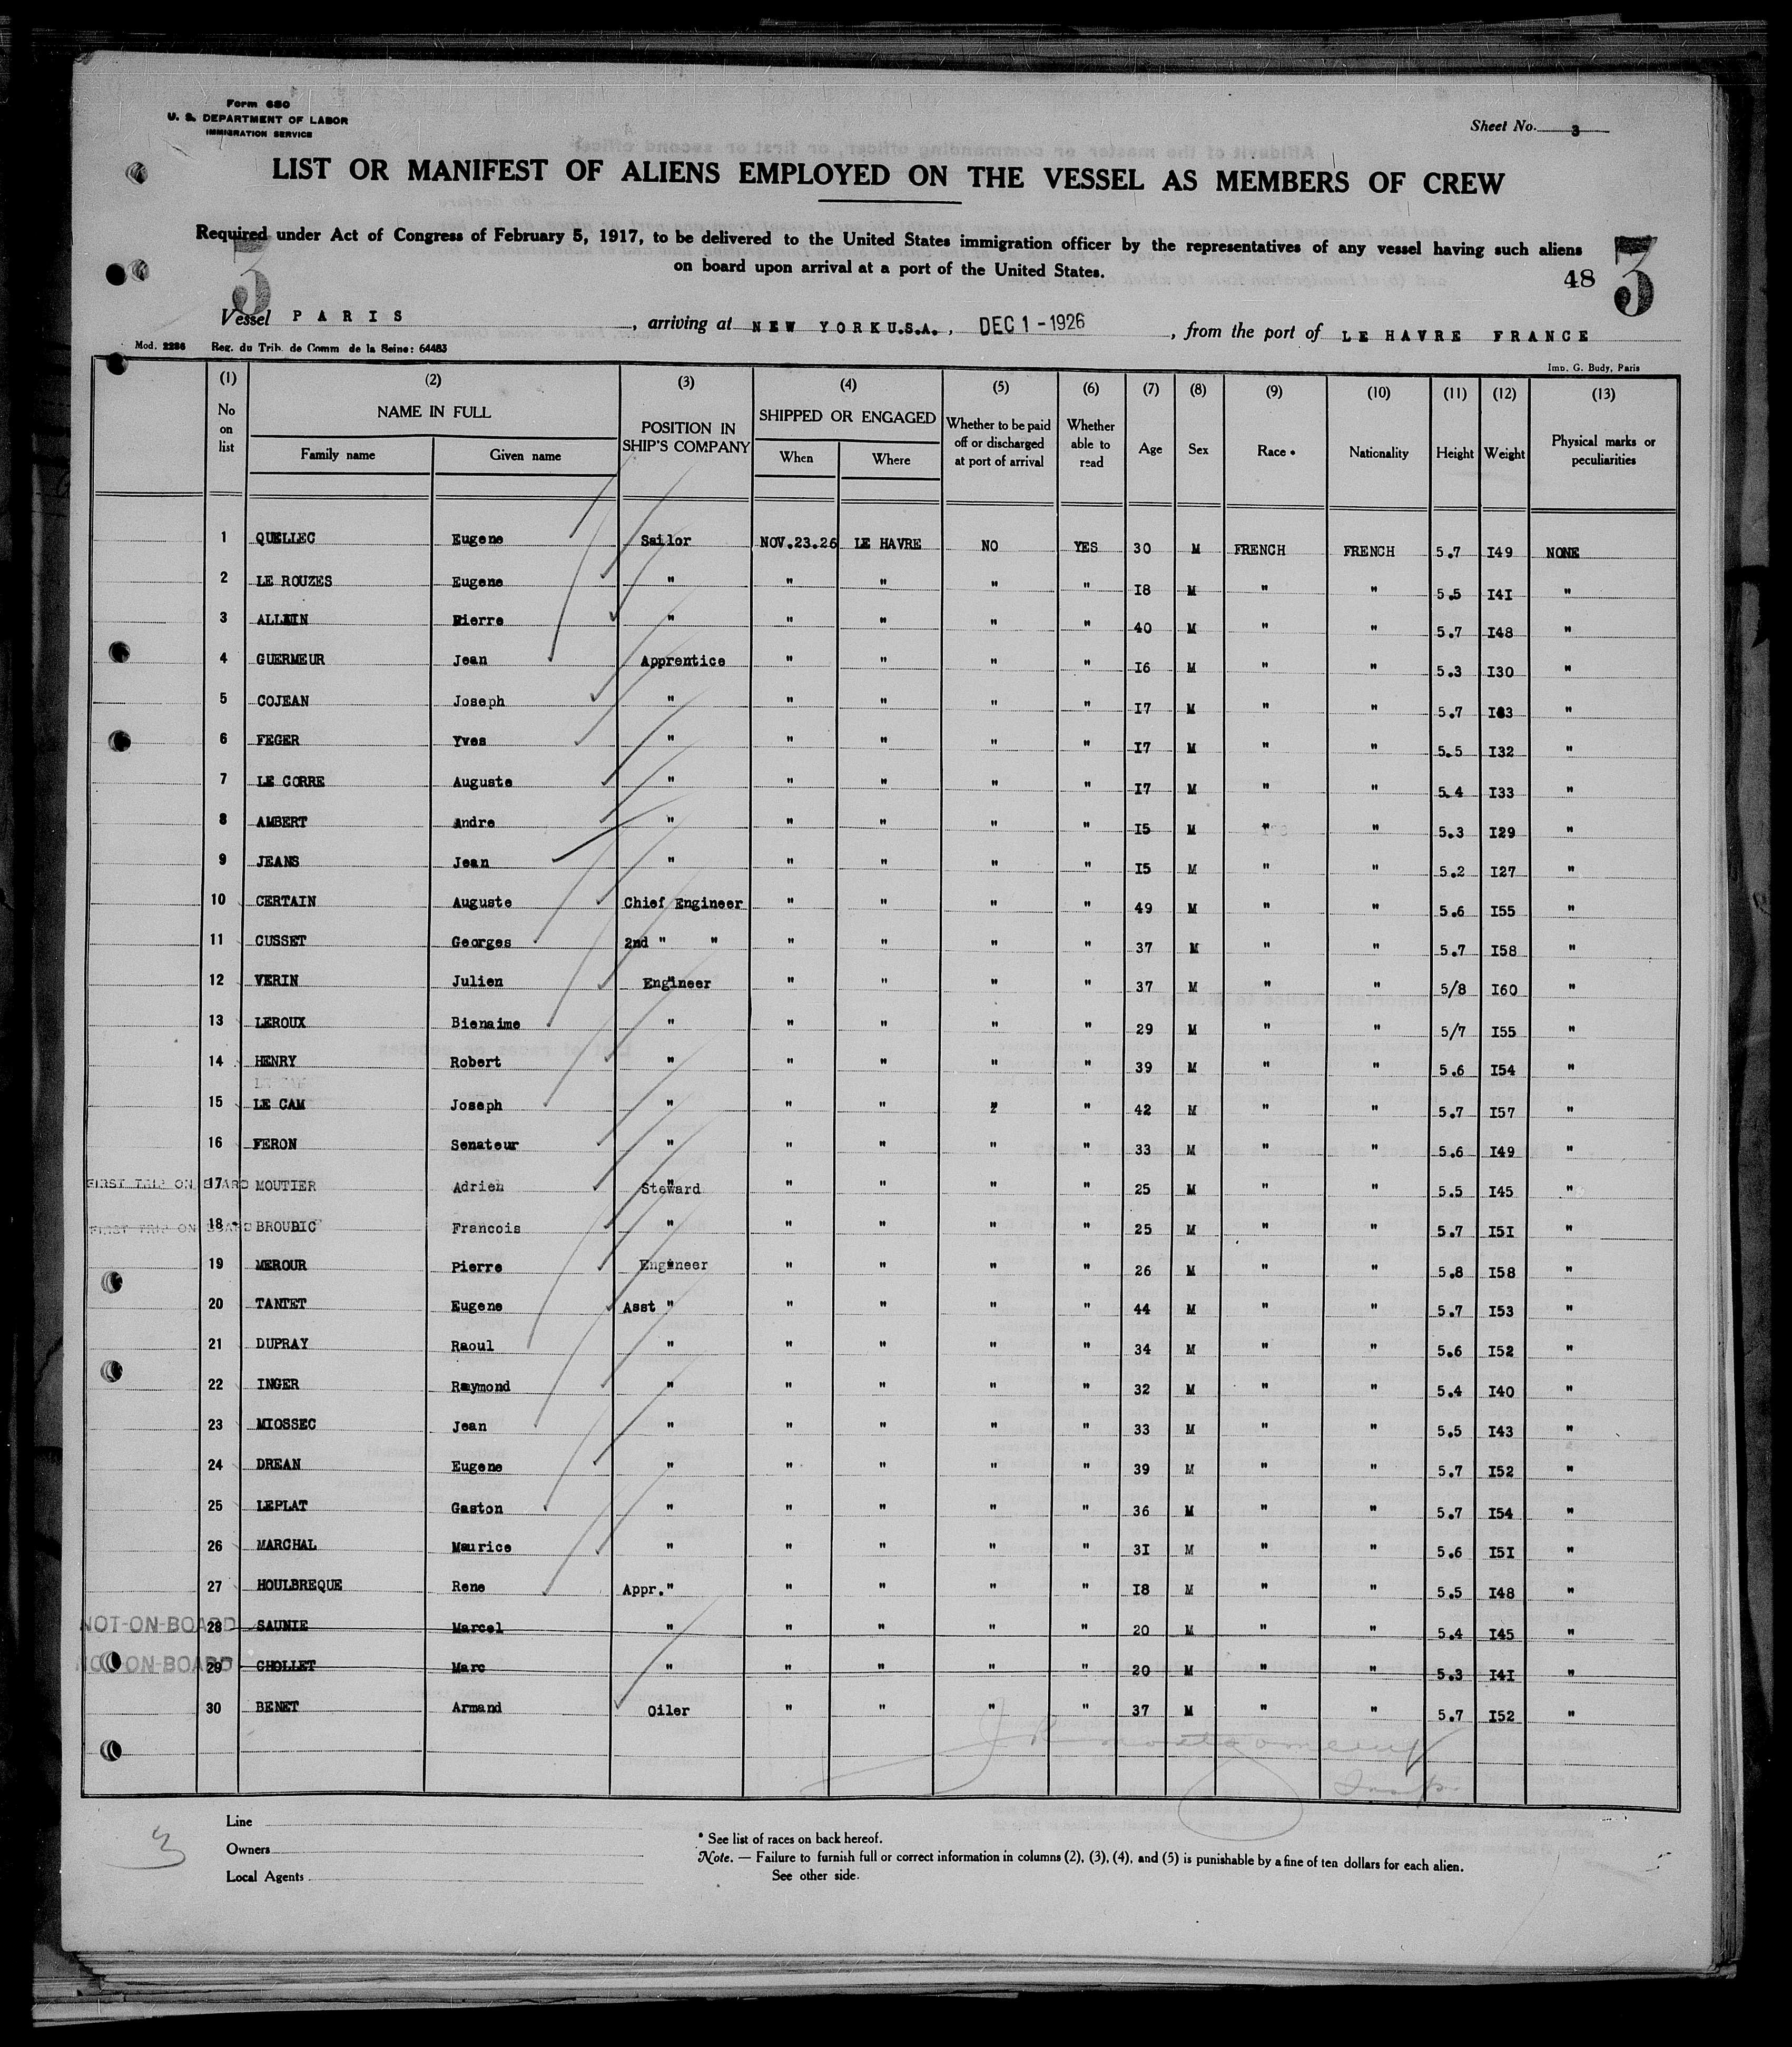 Form 680
U. S. DEPARTMENT OF LABOR
IMMIGRATION SERVICE
Sheet No. 3
LIST OR MANIFEST OF ALIENS EMPLOYED ON THE VESSEL AS MEMBERS OF CREW
Required under Act of Congress of February 5, 1917, to be delivered to the United States immigration officer by the representatives of any vessel having such aliens
on board upon arrival at a port of the United States.
3 48 3
Vessel PARIS, arriving at NEW YORK U.S.A., DEC 1-1926, from the port of LE HAVRE FRANCE
Mod. 2286 Reg. du Trib. de Comm de la Seine: 64483 Imp. G. Budy, Paris
(1) (2) (3) (4) (5) (6) (7) (8) (9) (10) (11) (12) (13)
No on list NAME IN FULL Family name Given name POSITION IN SHIP'S COMPANY SHIPPED OR ENGAGED When Where Whether to be paid off or discharged at port of arrival Whether able to read Age Sex Race * Nationality Height Weight Physical marks or peculiarities
1 QUELLEC Eugene Sailor NOV.23.26 LE HAVRE NO YES 30 M FRENCH FRENCH 5.7 I49 NONE
2 LE ROUZES Eugene " " " " " I8 M " " 5.5 I4I "
3 ALLAIN Pierre " " " " " 40 M " " 5.7 I48 "
4 GUERMEUR Jean Apprentice " " " " I6 M " " 5.3 I30 "
5 COJEAN Joseph " " " " " I7 M " " 5.7 "
6 FEGER Yves " " " " " I7 M " " 5.5 I32 "
7 LE CORRE Auguste " " " " " I7 M " " 5.4 I33 "
8 AMBERT Andre " " " " " I5 M " " 5.3 I29 "
9 JEANS Jean " " " " " I5 M " " 5.2 I27 "
10 CERTAIN Auguste Chief Engineer " " " " 49 M " " 5.6 I55 "
11 CUSSET Georges 2nd " " " " " " 37 M " " 5.7 I58 "
12 VERIN Julien Engineer " " " " 37 M " " 5/8 I60 "
13 LEROUX Bienaime " " " " " 29 M " " 5/7 I55 "
14 HENRY Robert " " " " " 39 M " " 5.6 I54 "
15 LE CAM Joseph " " " " " 42 M " " 5.7 I57 "
16 FERON Senateur " " " " " 33 M " " 5.6 I49 "
FIRST TRIP ON BOARD 17 MOUTIER Adrien Steward " " " " 25 M " " 5.5 I45 "
FIRST TRIP ON BOARD 18 BROUDIC Francois " " " " " 25 M " " 5.7 I5I "
19 MEROUR Pierre Engineer " " " " 26 M " " 5.8 I58 "
20 TANTET Eugene Asst " " " " " 44 M " " 5.7 I53 "
21 DUPRAY Raoul " " " " " 34 M " " 5.6 I52 "
22 INGER Raymond " " " " " 32 M " " 5.4 I40 "
23 MIOSSEC Jean " " " " " 33 M " " 5.5 I43 "
24 DREAN Eugene " " " " " 39 M " " 5.7 I52 "
25 LEPLAT Gaston " " " " " 36 M " " 5.7 I54 "
26 MARCHAL Maurice " " " " " 3I M " " 5.6 I5I "
27 HOULBREQUE Rene Appr." " " " " I8 M " " 5.5 I48 "
NOT-ON-BOARD 28 SAUNIE Marcel " " " " " 20 M " " 5.4 I45 "
NOT-ON-BOARD 29 CHOLLET Marc " " " " " 20 M " " 5.3 I4I "
30 BENET Armand Oiler " " " " 37 M " " 5.7 I52 "
3
Line
Owners
Local Agents
* See list of races on back hereof.
Note. — Failure to furnish full or correct information in columns (2), (3), (4), and (5) is punishable by a fine of ten dollars for each alien.
See other side.